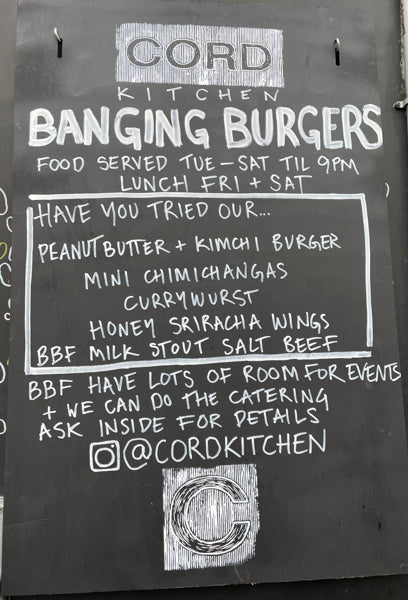 CORD
KITCHEN
BANGING BURGERS
FOOD SERVED TUE – SAT TIL 9PM
LUNCH FRI + SAT
HAVE YOU TRIED OUR...
PEANUTBUTTER + KIMCHI BURGER
MINI CHIMICHANGAS
CURRYWURST
HONEY SRIRACHA WINGS
BBF MILK STOUT SALT BEEF
BBF HAVE LOTS OF ROOM FOR EVENTS
+ WE CAN DO THE CATERING
ASK INSIDE FOR DETAILS
@CORDKITCHEN
C